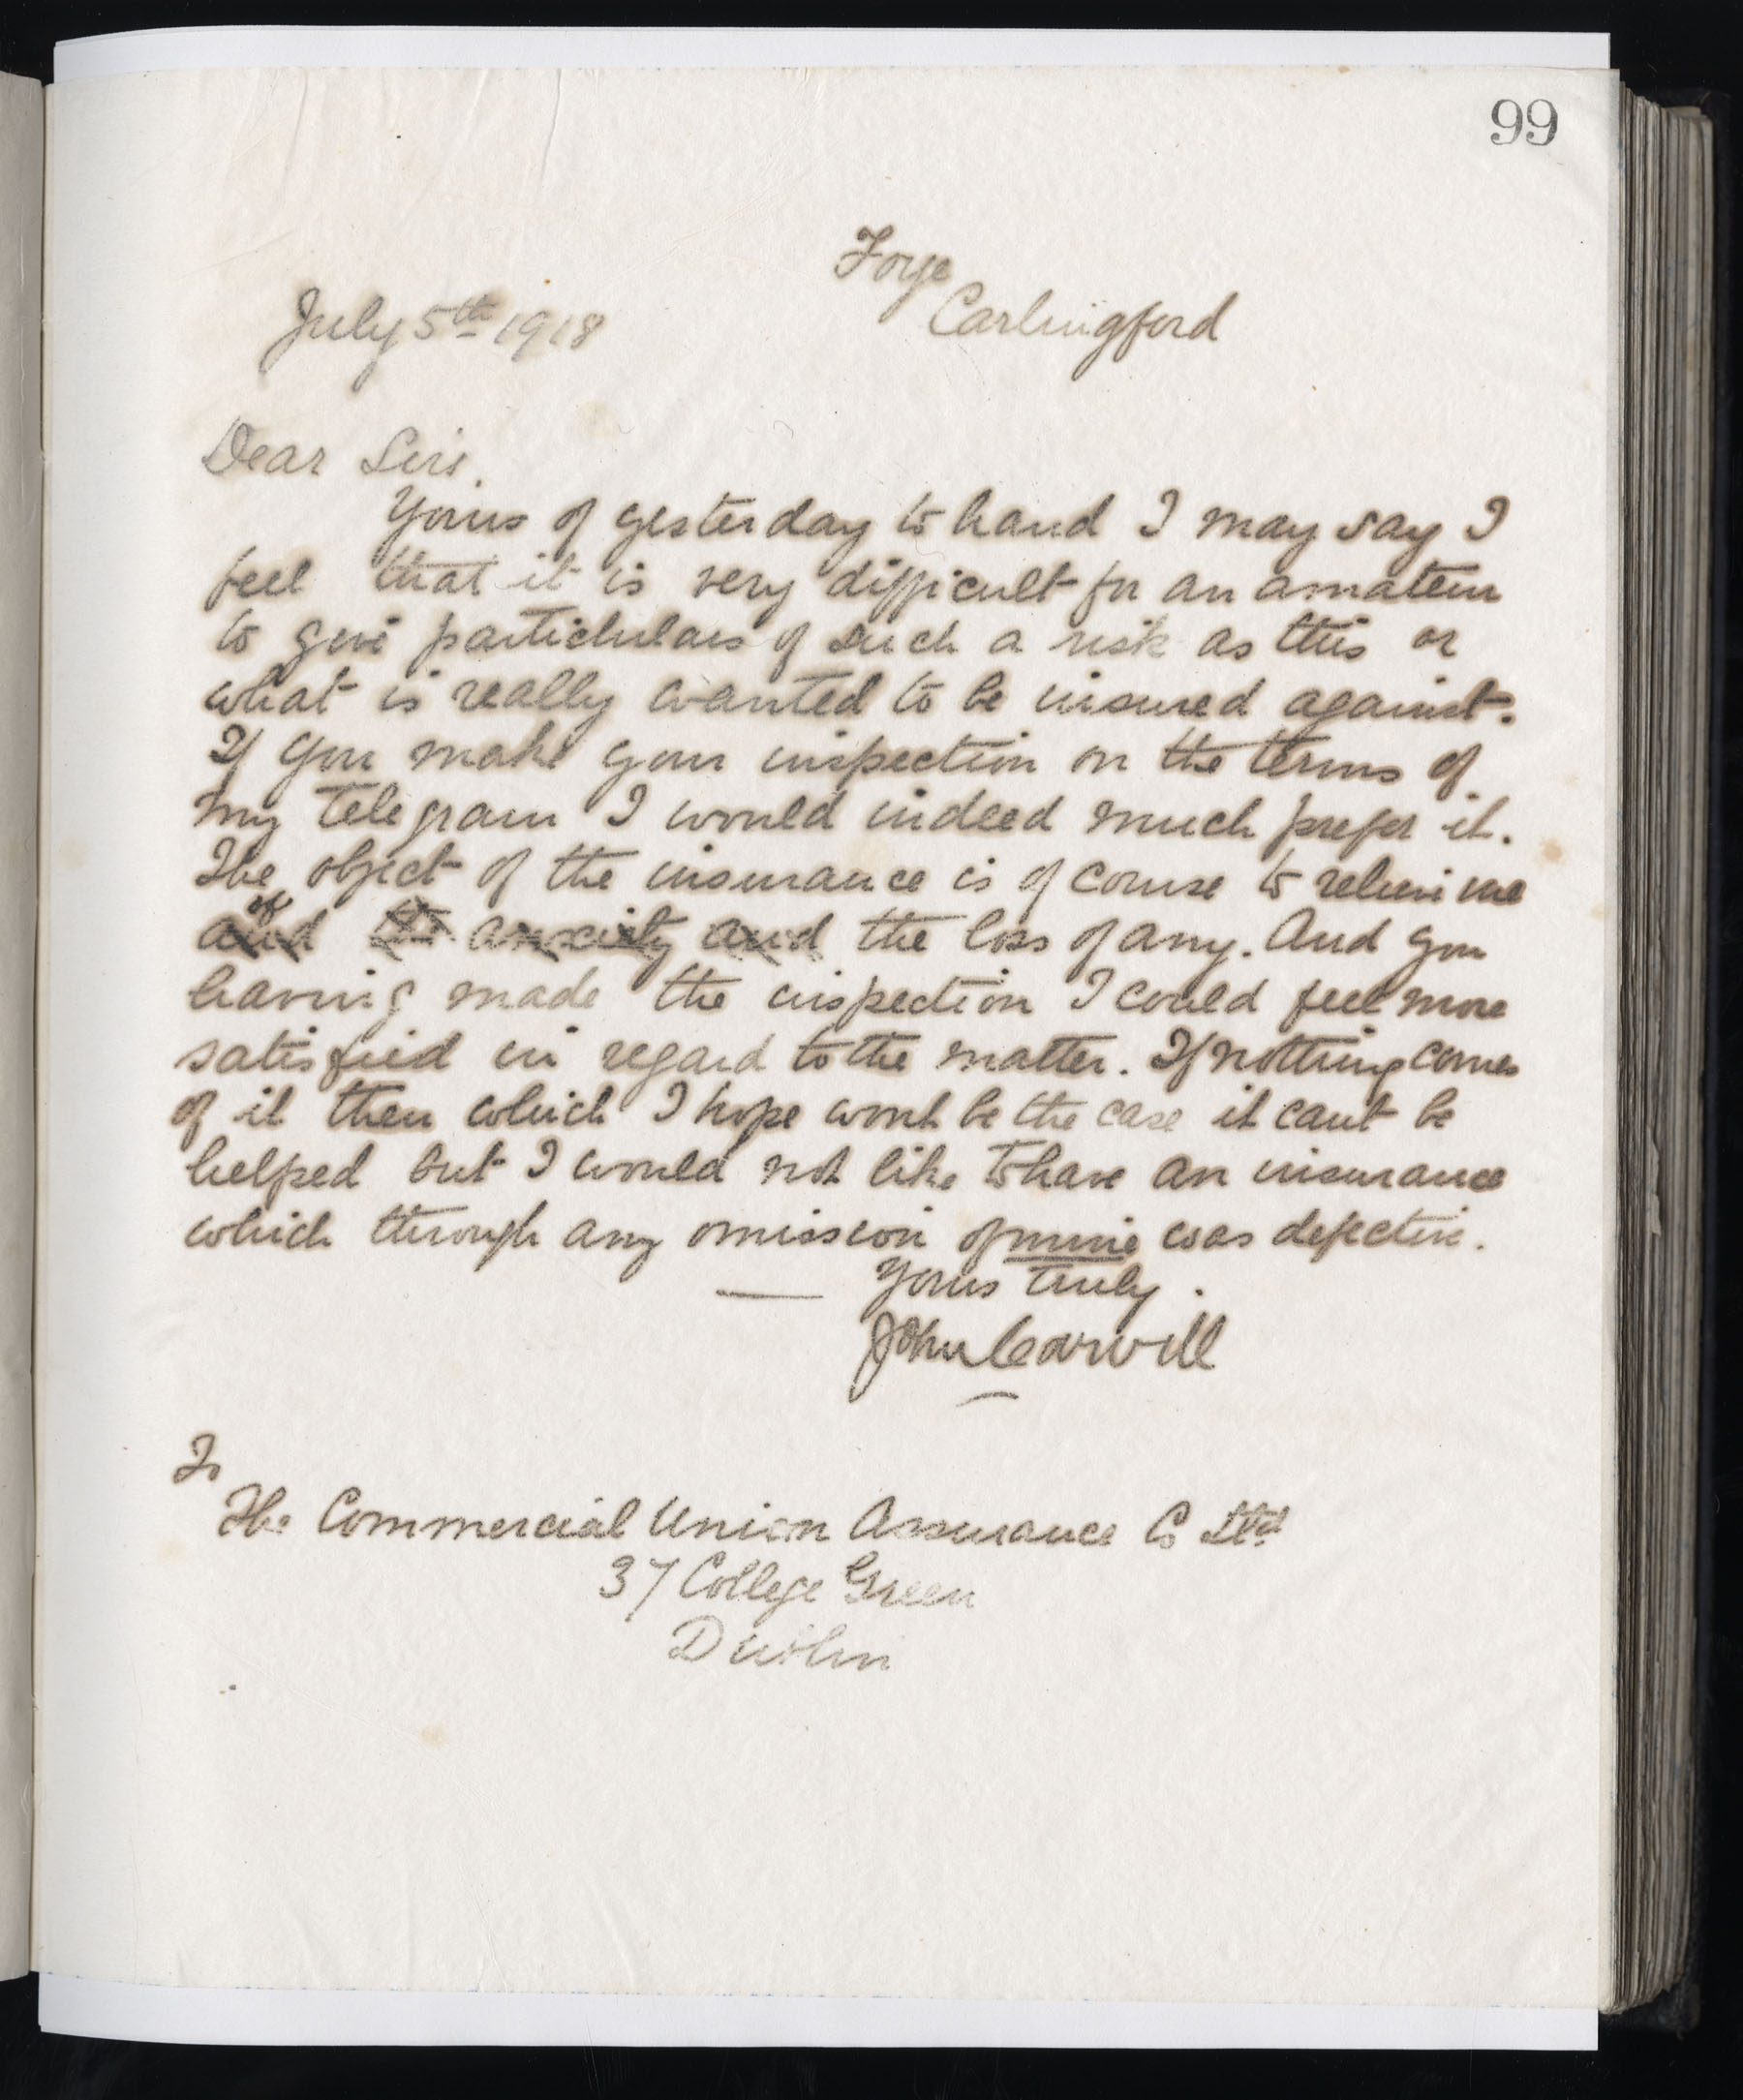 99
Foye
Carlingford
July 5th 1918
Dear Sirs,
Yours of yesterday to hand I may say I
feel that it is very difficult for an amateur
to give partichulars of such a risk as this or
what is really wanted to be insured against.
If you make your inspection on the terms of
my telegram I would indeed much prefer it.
The object of the insurance is of course to relieve me
of
and the anxiety and the loss of any. And you
having made the inspection I could feel more
satisfied in regard to the matter. If nothing comes
of it then which I hope wont be the case it cant be
helped but I would not like to have an insurance
which through any omission of mine was defective.
Yours truly.
John Carvill
To
The Commercial Union Assurance Co Ltd.
37 College Green
Dublin